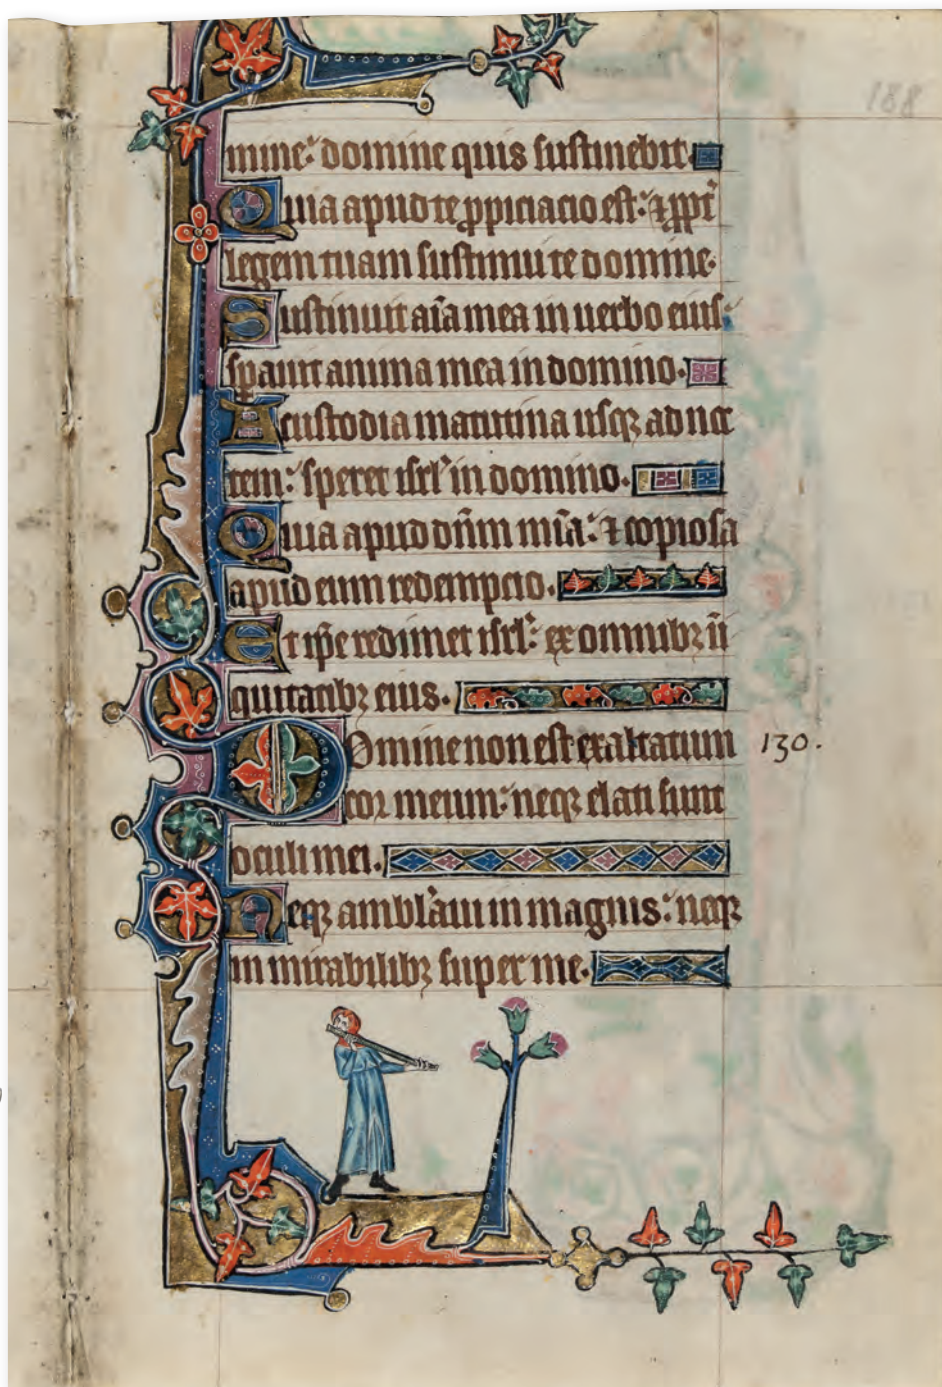 188
mine: domine quis sustinebit.
Quia apud te ꝓpiciacio est: ⁊ ꝓpt̃
legem tuam sustinui te domine.
Sustinuit aĩa mea in uerbo eius:
sꝑauit anima mea in domino.
A custodia matutina usqꝫ ad noc
tem: speret isrl̃ in domino.
Quia apud dñm mĩa: ⁊ copiosa
apud eum redempcio.
Et ip̃e redimet isrl̃: ex omnibꝫ ini
quitatibꝫ eius.
Domine non est exaltatum
130.
cor meum: neqꝫ elati sunt
oculi mei.
Neqꝫ ambl̃aui in magnis: neqꝫ
in mirabilibꝫ super me.